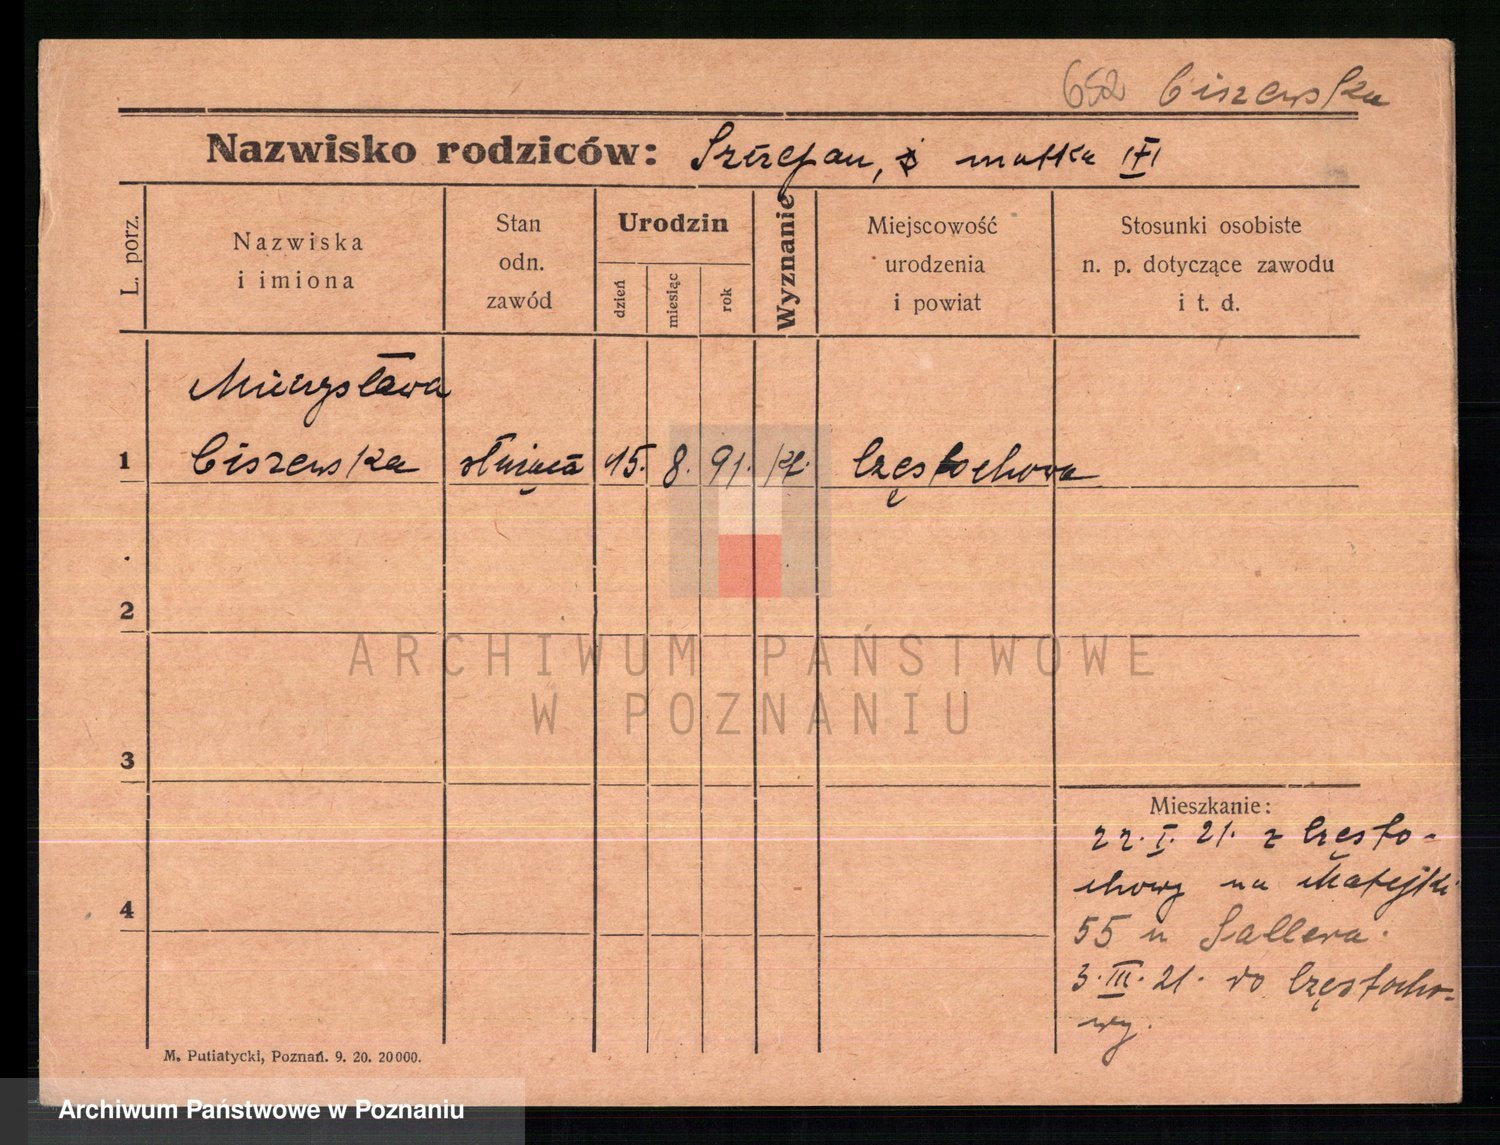 652 Ciszewska
Nazwisko rodziców: Szczepan, i matka
L. porz.
Nazwiska
i imiona
Stan
odn.
zawód
Urodzin
dzień
miesiąc
rok
Wyznanie
Miejscowość
urodzenia
i powiat
Stosunki osobiste
n. p. dotyczące zawodu
i t. d.
Mieczysława
1 Ciszewska służąca 15. 8. 91. kt. Częstochowa
2
3
4
Mieszkanie:
22. I. 21. z Często-
chowy na Matejki
55 u Sallera.
3. III. 21. do Częstocho-
wy.
M. Putiatycki, Poznań. 9. 20. 20000.
ARCHIWUM PAŃSTWOWE
W POZNANIU
Archiwum Państwowe w Poznaniu